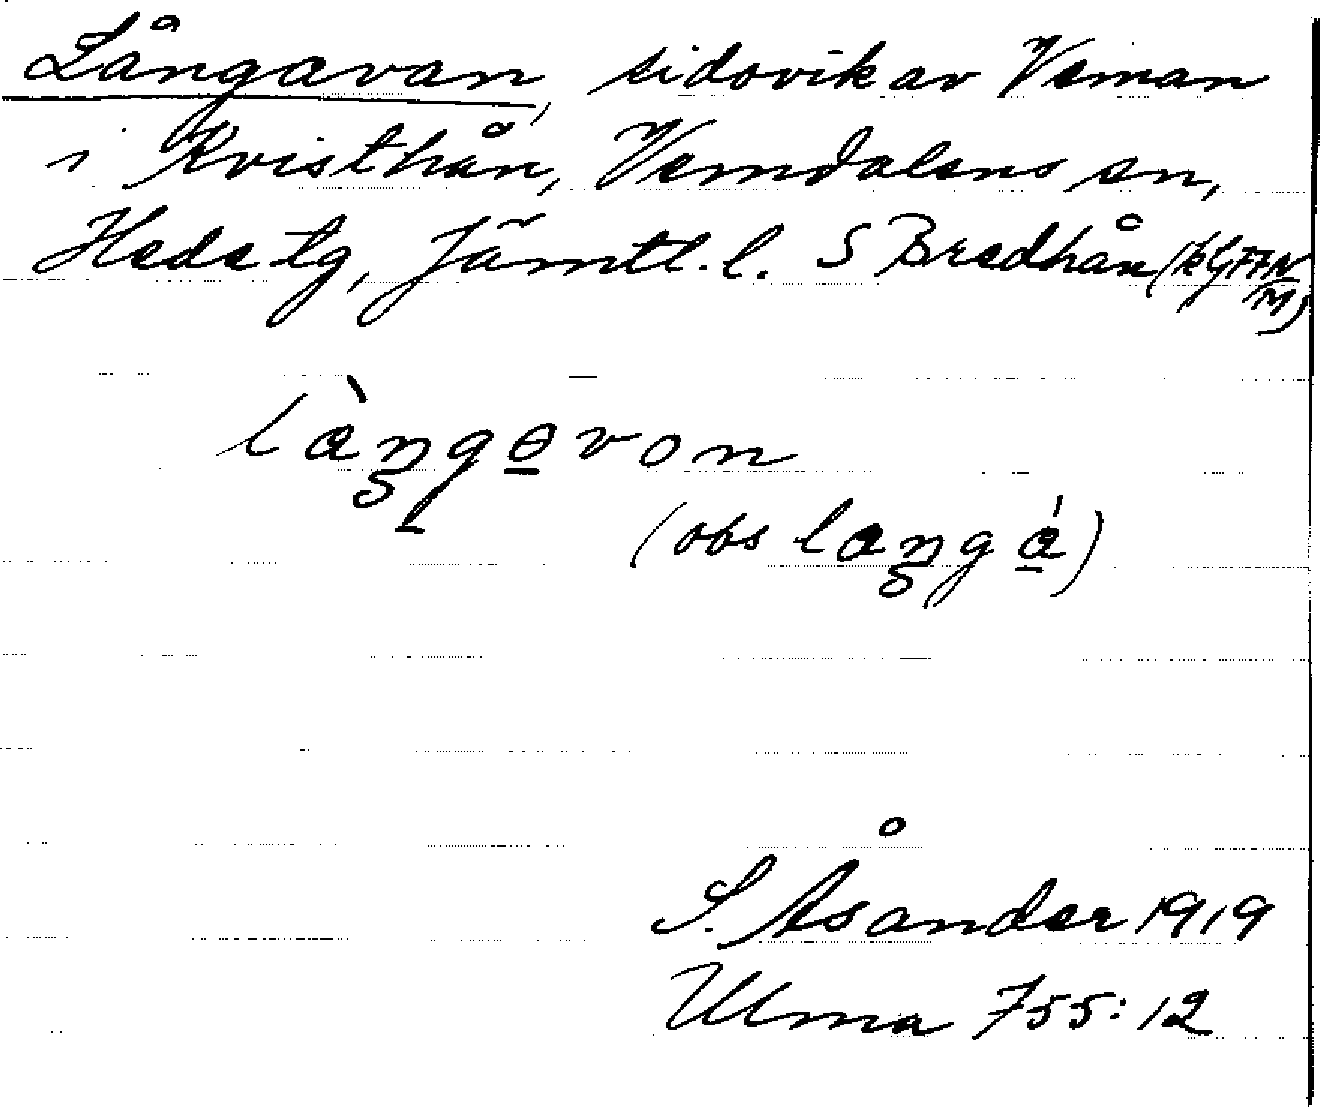 Långavan, sidovik av Veman
i Kvisthån, Vemdalens sn,
Hede tg, Jämtl. l. S Bredhån
làŋgəvon
(obs laŋgá)
S. Åsander 1919
Ulma 755:12